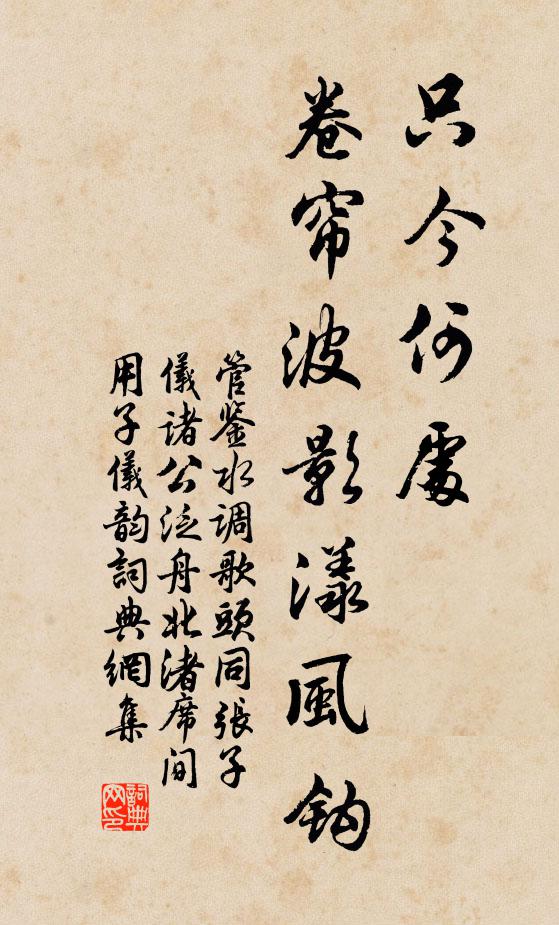 只今何處
卷帘波影漾風鈎
管鉴水调歌頭同張子
儀诸公泛舟北渚席间
用子儀韵詞典網集
詞典网印